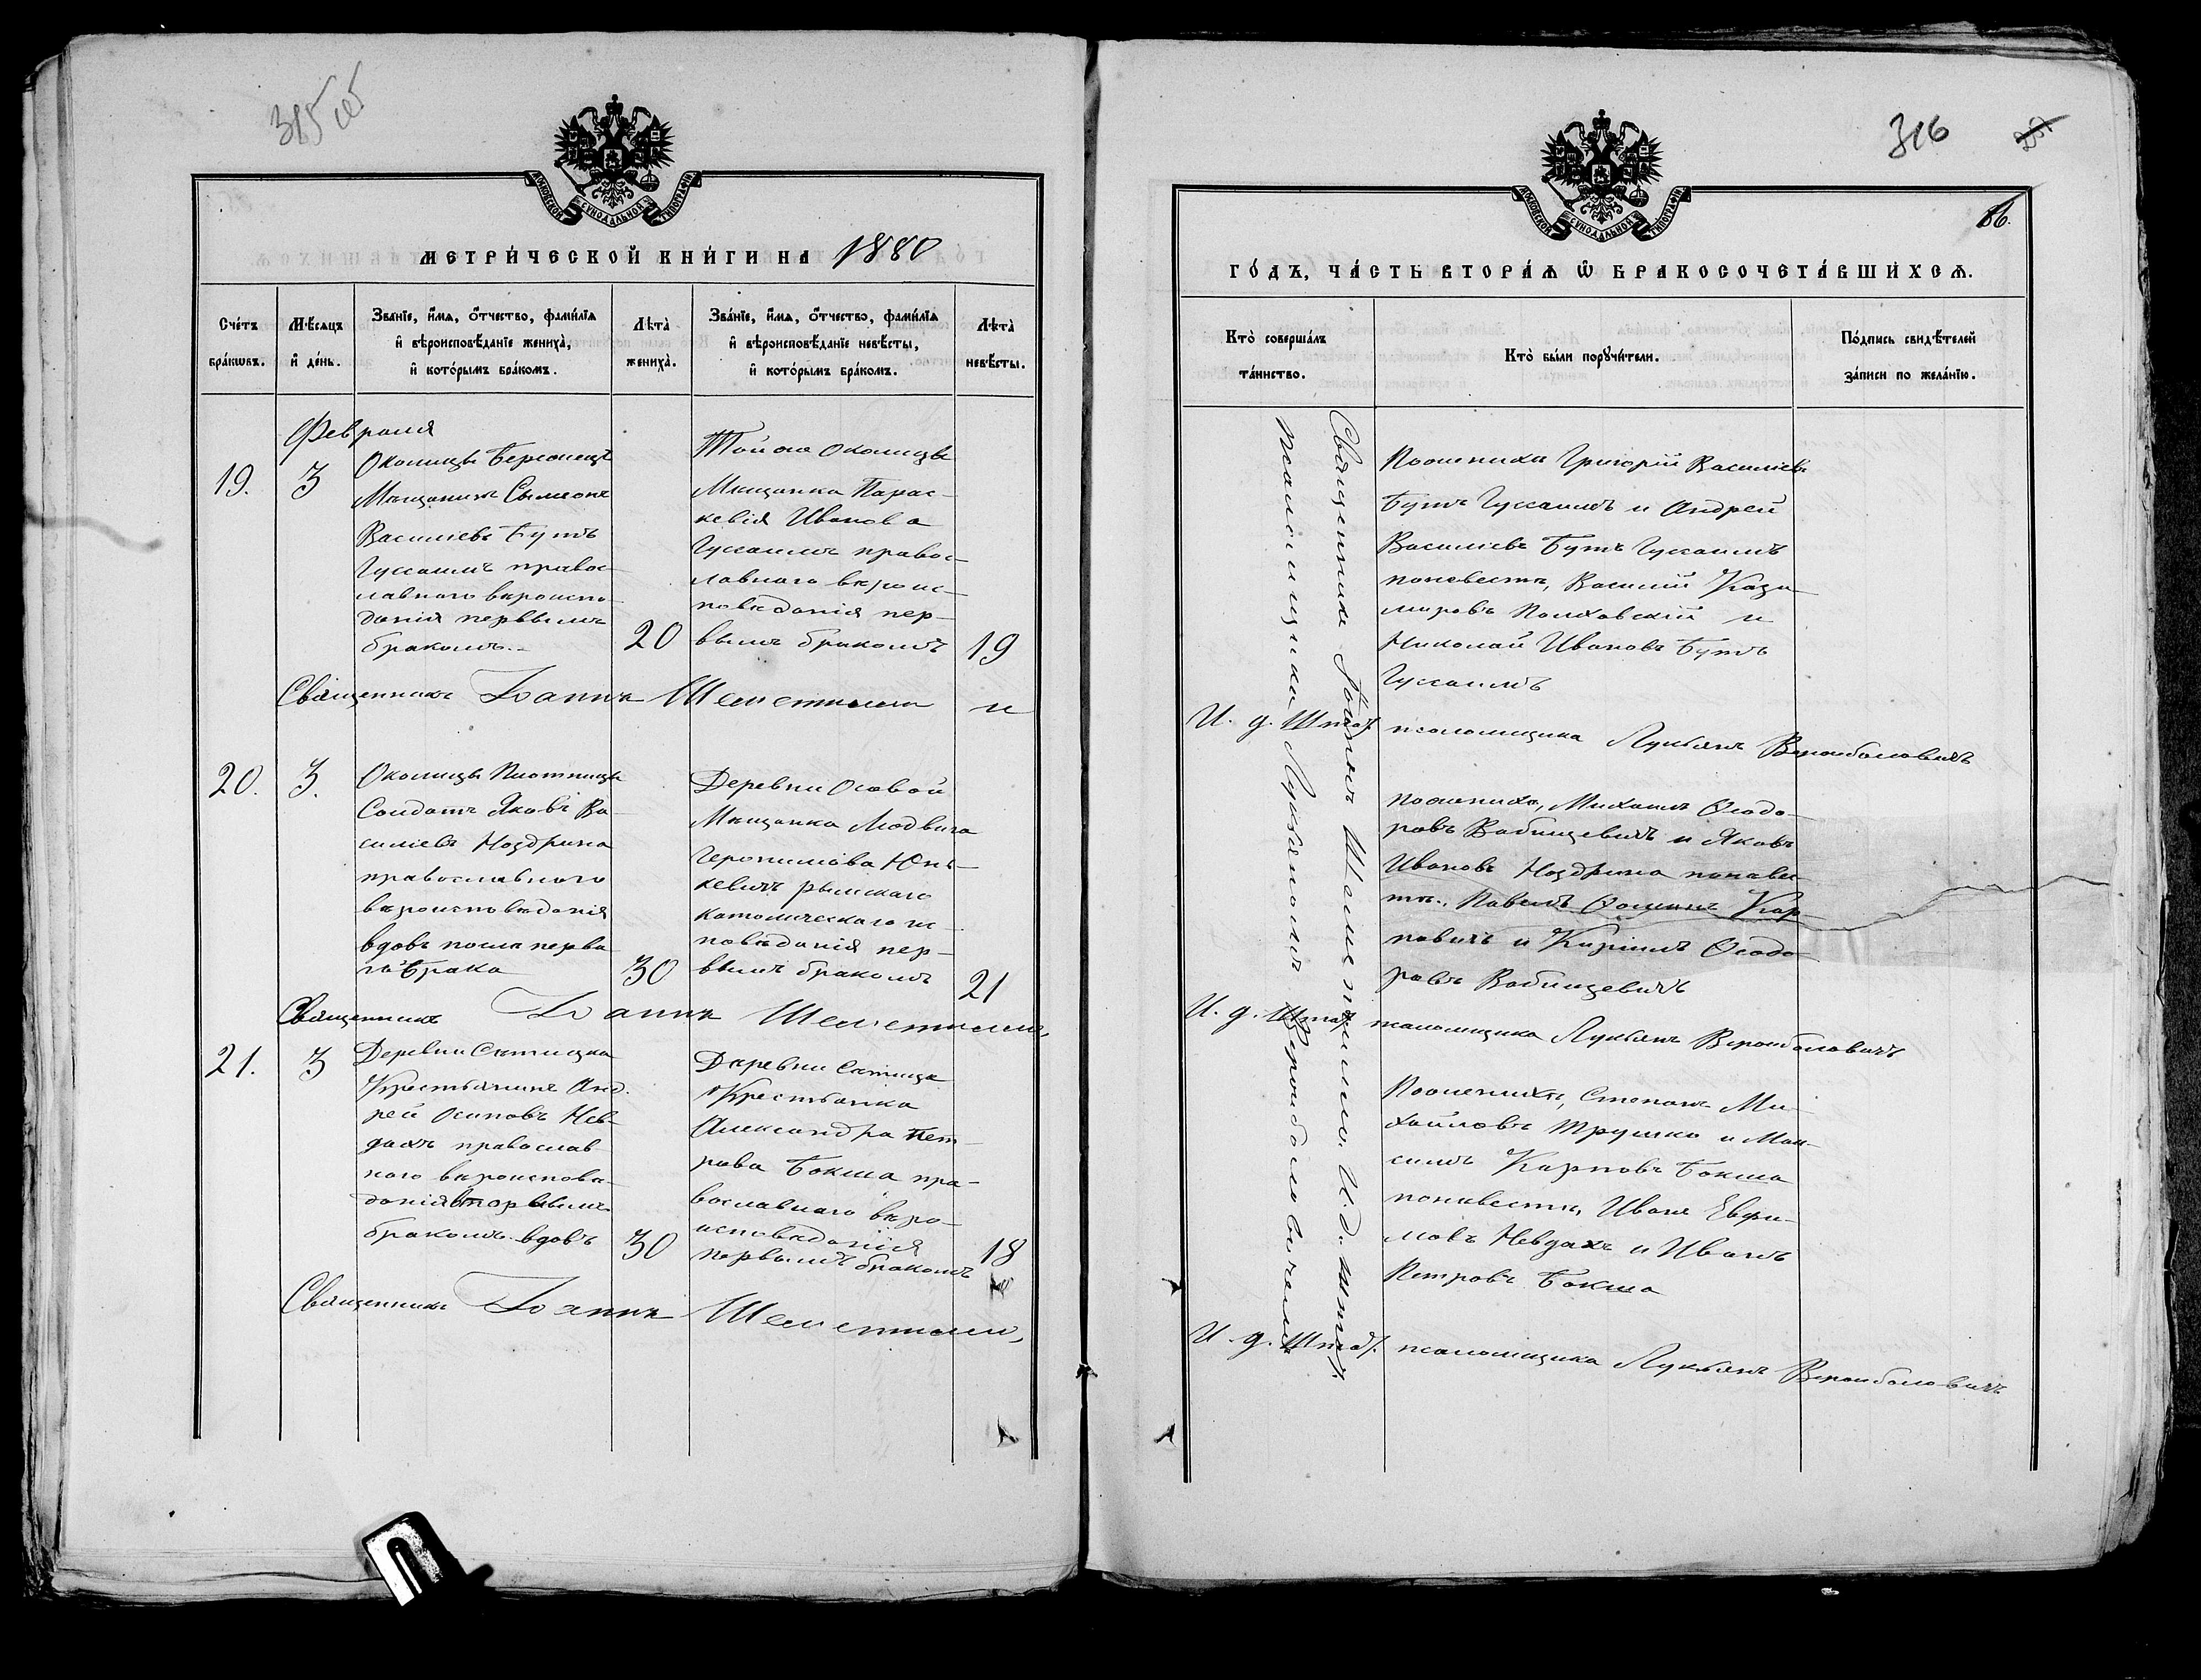 315 об
316
86.
МОСКОВСКОЙ СУНОДАЛЬНОЙ ТИПОГРАФІИ
МЕТРИ́ЧЕСКОЙ КНИ́ГИ НА 1880
Сче́тъ бра́кѡвъ.
Мѣ́сяцъ и҆ де́нь.
Зва́нїе, и҆́мѧ, ѻ҆́тчество, фами́лїѧ
и҆ вѣроисповѣ́данїе жениха̀,
и҆ кото́рымъ бра́комъ.
Лѣта̀ жениха̀.
Зва́нїе, и҆́мѧ, ѻ҆́тчество, фами́лїѧ
и҆ вѣроисповѣ́данїе невѣ́сты,
и҆ кото́рымъ бра́комъ.
Лѣта̀ невѣ́сты.
Февраля
19.
3
Околицы Бережцевъ
Мѣщанинъ Сымеонъ
Василіевъ Бутъ
Гуссаимъ правос-
лавнаго вѣроиспо-
данія первымъ
бракомъ.
20
Той же околицы
Мѣщанка Парас-
кевія Иванова
Гуссаимъ правос-
лавнаго вѣроис-
повѣданія пер-
вымъ бракомъ
19
Священникъ Іоаннъ Шеметилло и
20.
3.
Околицы Плотницы
Солдатъ Яковъ Ва-
силіевъ Ноздрина
православнаго
вѣроисповѣданія
вдовъ послѣ перва
го брака
30
Деревни Осовой
Мѣщанка Людвига
Геронимова Юнь-
кевичъ рымскаго
католическаго ис-
повѣданія пер-
вымъ бракомъ
21
Священникъ Іоаннъ Шеметилло,
21.
3
Деревни Ситицка
Крестьянинъ Анд-
рей Осиповъ Нев-
дахъ православ
наго вѣроисповѣ-
данія вторымъ
бракомъ вдовъ
30
Деревни Ситицк
Крестьянка
Александра Пет-
рова Бокша пра-
вославнаго вѣро-
исповѣданія
первымъ бракомъ
18
Священникъ Іоаннъ Шеметилло,
МОСКОВСКОЙ СУНОДАЛЬНОЙ ТИПОГРАФІИ
ГО́ДЪ, ЧА́СТЬ ВТОРА́Ѧ Ѽ БРАКОСОЧЕТА́ВШИХСѦ.
Кто̀ соверша́лъ
та́инство.
Кто̀ бы́ли порꙋчи́тели.
По́дпись свидѣ́телей
за́писи по жела́нїю.
Священникъ Іоаннъ Шеметилло. И. д. штат.
псаломщика Лукьяномъ Вероиболовичемъ
Поженихѣ Григорій Василіевъ
Бутъ Гуссаимъ и Андрей
Василіевъ Бутъ Гуссаимъ
поневестѣ, Василій Кази-
мировъ Полховскій и
Николай Ивановъ Бутъ
Гуссаимъ
И. д. Штат. псаломщика Лукьянъ Вероиболовичъ
поженихѣ, Михаилъ Ѳеодо-
ровъ Вабищевичъ и Яковъ
Ивановъ Ноздрина поневе-
стѣ, Павелъ Ѳоминъ Кар-
повичъ и Кирилъ Ѳеодо-
ровъ Вабищевичъ
И. д. штат. псаломщика Лукьянъ Вероиболовичъ
Поженихѣ, Степанъ Ми-
хайловъ Трушко и Мак-
симъ Карповъ Бокша
поневестѣ, Иванъ Евфи-
мовъ Невдахъ и Иванъ
Петровъ Бокша
И. д. Штат. псаломщика Лукьянъ Вероиболовичъ